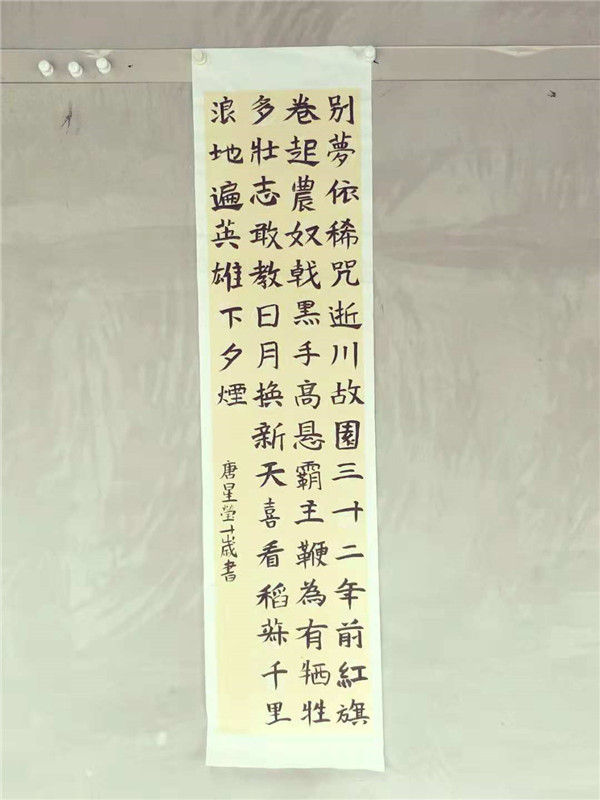 別夢依稀咒逝川故園三十二年前紅旗
卷起農奴戟黑手高悬霸主鞭為有牺牲
多壯志敢教日月换新天喜看稻菽千里
浪地遍英雄下夕煙
唐星瑩十歲書